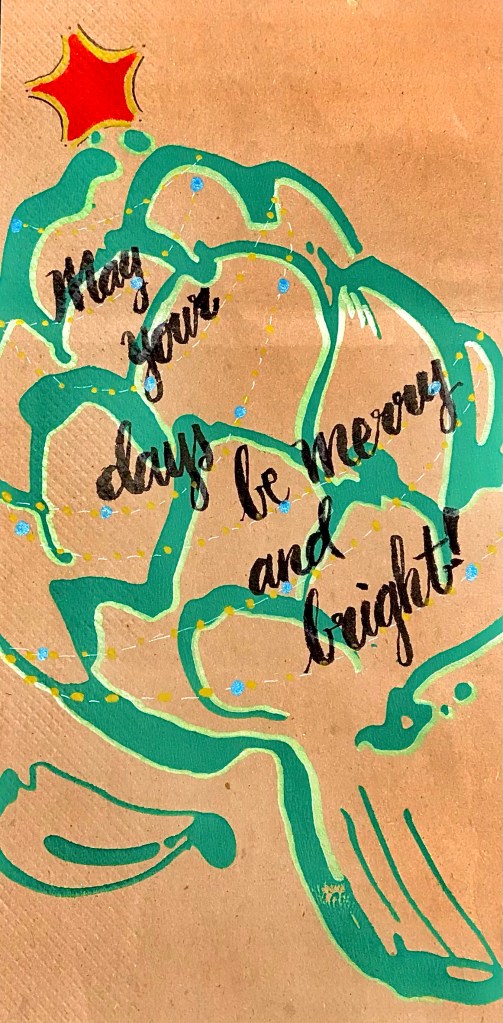 May
your
days be merry
and
bright!